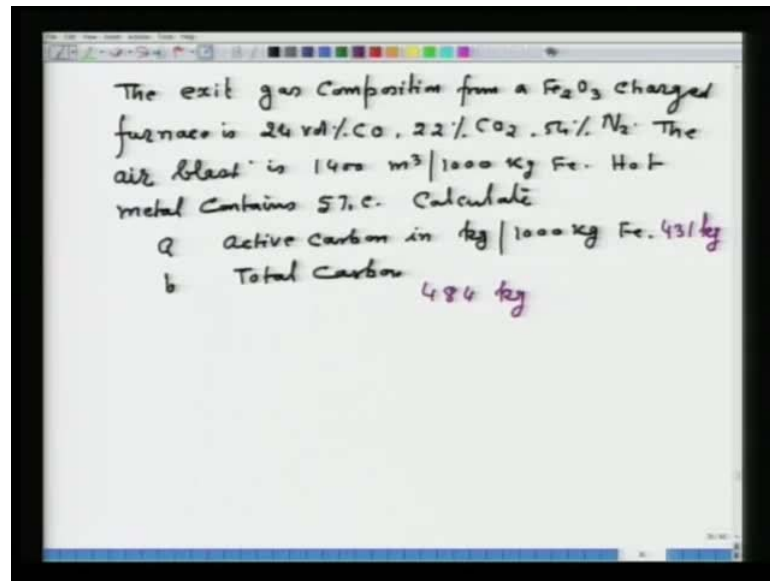 The exit gas Composition from a Fe2O3 charged
furnace is 24 vol % CO, 22% CO2, 54% N2. The
air blast is 1400 m3 | 1000 kg Fe. Hot
metal Contains 5% C. Calculate
a active Carbon in kg | 1000 kg Fe. 431 kg
b Total Carbon
484 kg